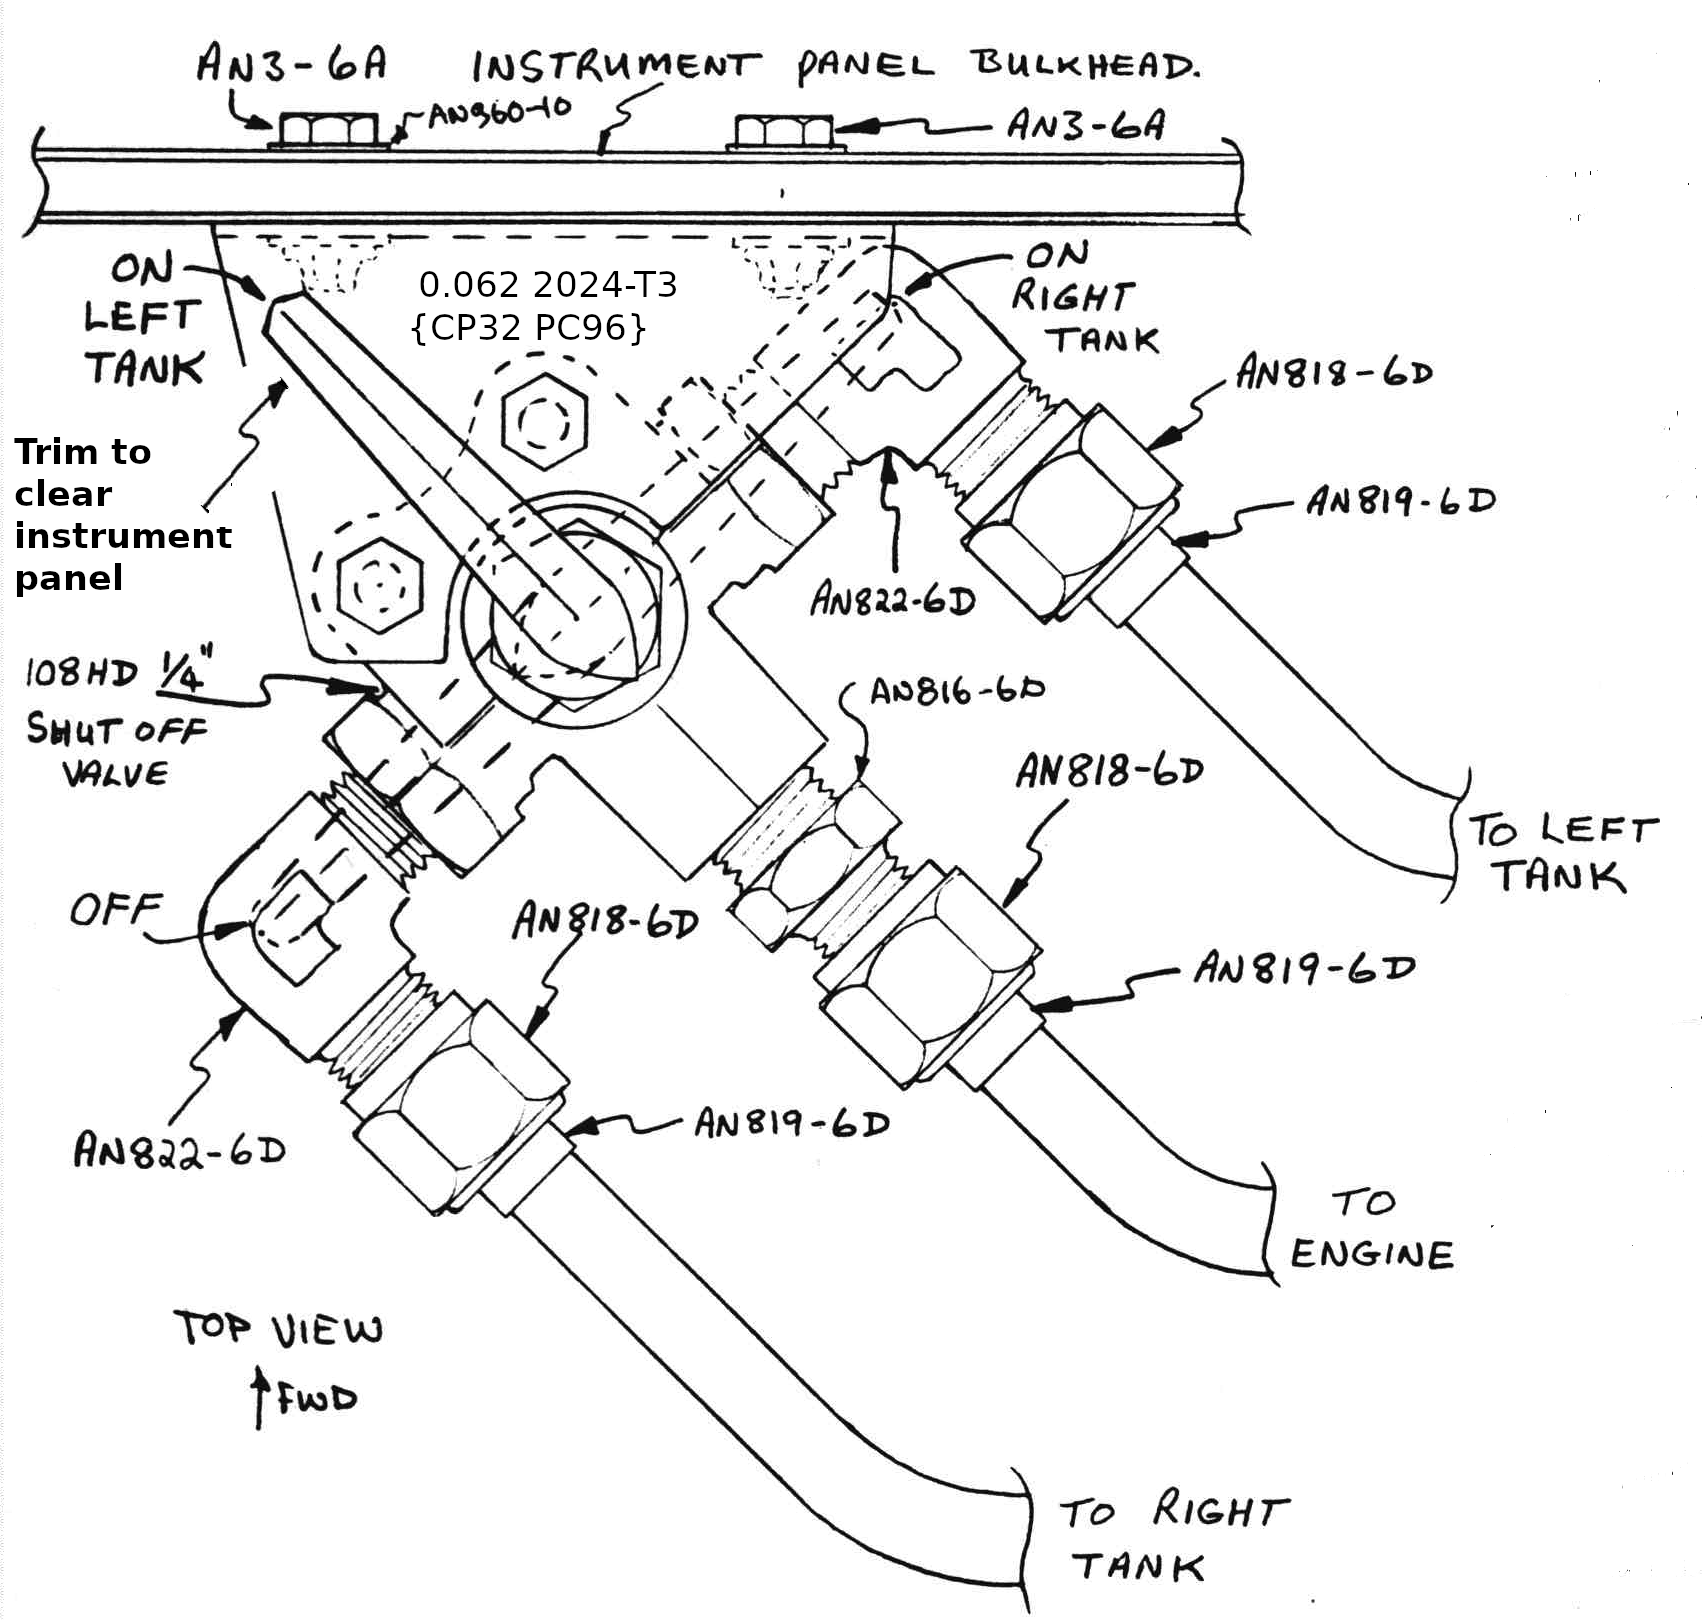 AN3-6A
INSTRUMENT PANEL BULKHEAD.
AN960-10
AN3-6A
ON
LEFT
TANK
0.062 2024-T3
{CP32 PC96}
ON
RIGHT
TANK
AN818-6D
Trim to
clear
instrument
panel
AN819-6D
AN822-6D
108HD 1/4"
SHUT OFF
VALVE
AN816-6D
AN818-6D
TO LEFT
TANK
OFF
AN818-6D
AN819-6D
AN822-6D
AN819-6D
TO
ENGINE
TOP VIEW
FWD
TO RIGHT
TANK